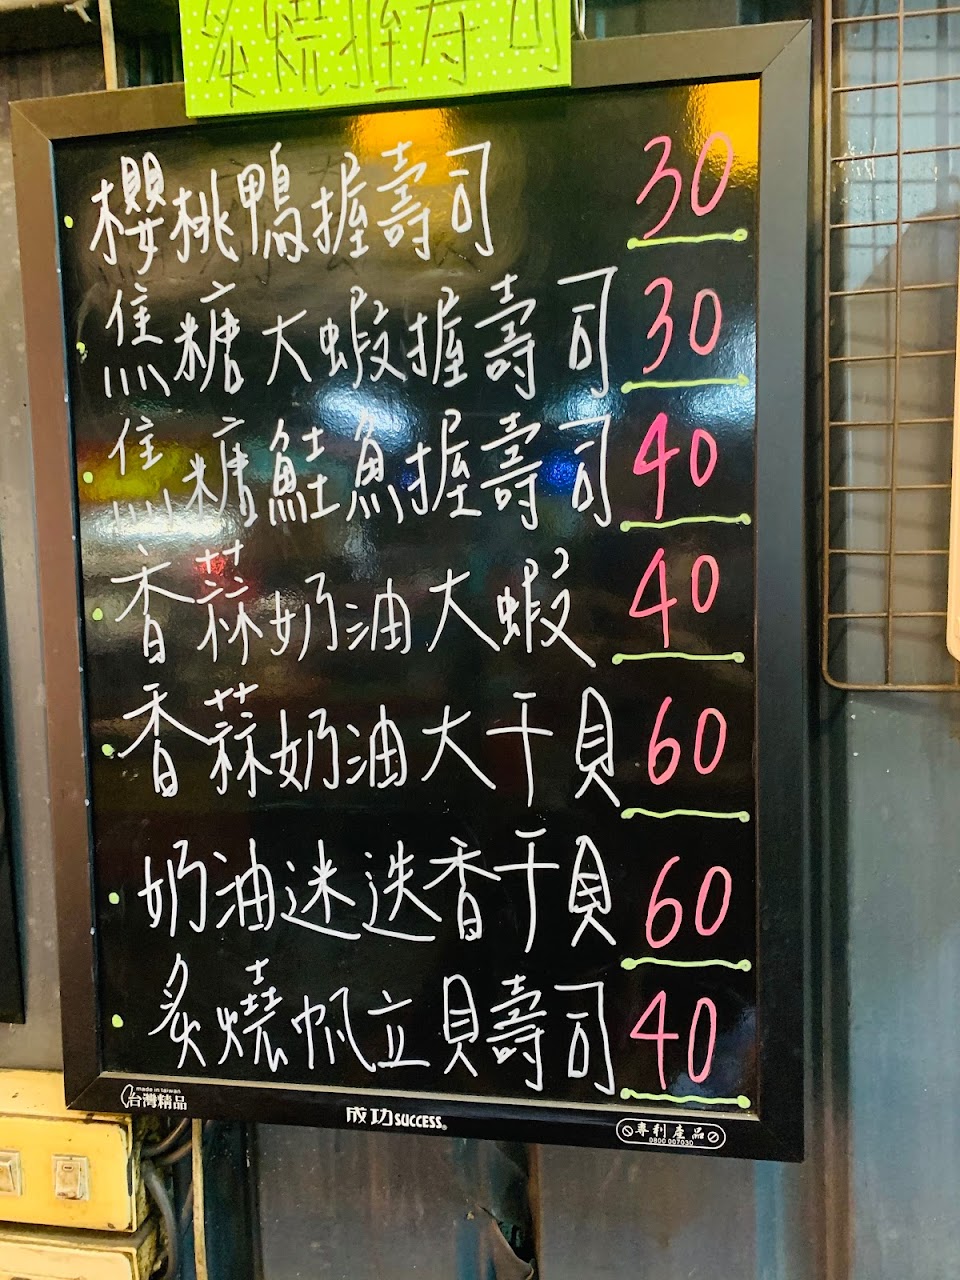 炙燒握壽司
櫻桃鴨握壽司 30
焦糖大蝦握壽司 30
焦糖鮭魚握壽司 40
香蒜奶油大蝦 40
香蒜奶油大干貝 60
奶油迷迭香干貝 60
炙燒帆立貝壽司 40
made in taiwan
台灣精品
成功 SUCCESS®
專利產品
0800 007030